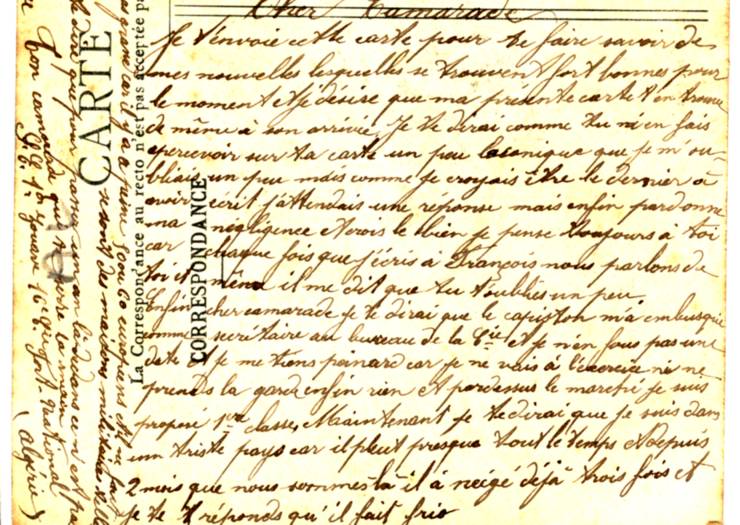 Cher Camarade
Je t'envoie cette carte pour te faire savoir de
mes nouvelles lesquelles se trouvent fort bonnes pour
le moment et je désire que ma présente carte t'en trouve
de même à son arrivée. Je te dirai comme tu m'en fais
apercevoir sur ta carte un peu laconique que je m'ou-
bliais un peu mais comme je croyais être le dernier à
avoir écrit j'attendais une réponse mais enfin pardonne
ma négligence et crois le bien je pense toujours à toi
car chaque fois que j'écris à François nous parlons de
toi et même il me dit que tu t'oublies un peu.
Enfin cher camarade je te dirai que le capiston m'a embusqué
comme secrétaire au bureau de la Cie et je n'en fous pas une
date et je me tiens peinard car je ne vais à l'exercice ni ne
prends la garde enfin rien et pardessus le marché je suis
proposé 1ère classe. Maintenant je te dirai que je suis dans
un triste pays car il pleut presque tout le temps et depuis
2 mois que nous sommes là il à neigé déjà trois fois et
je te réponds qu'il fait frio
CARTE
La Correspondance au recto n'est pas acceptée pa
CORRESPONDANCE
car il y a à peine 300 européens et
se sont des maisons militaires
pour passer un an là dedans ce n'est pas
Ton camarade qui te serre la main
1er Zouave 16e Cie Fort-National
(Algérie)